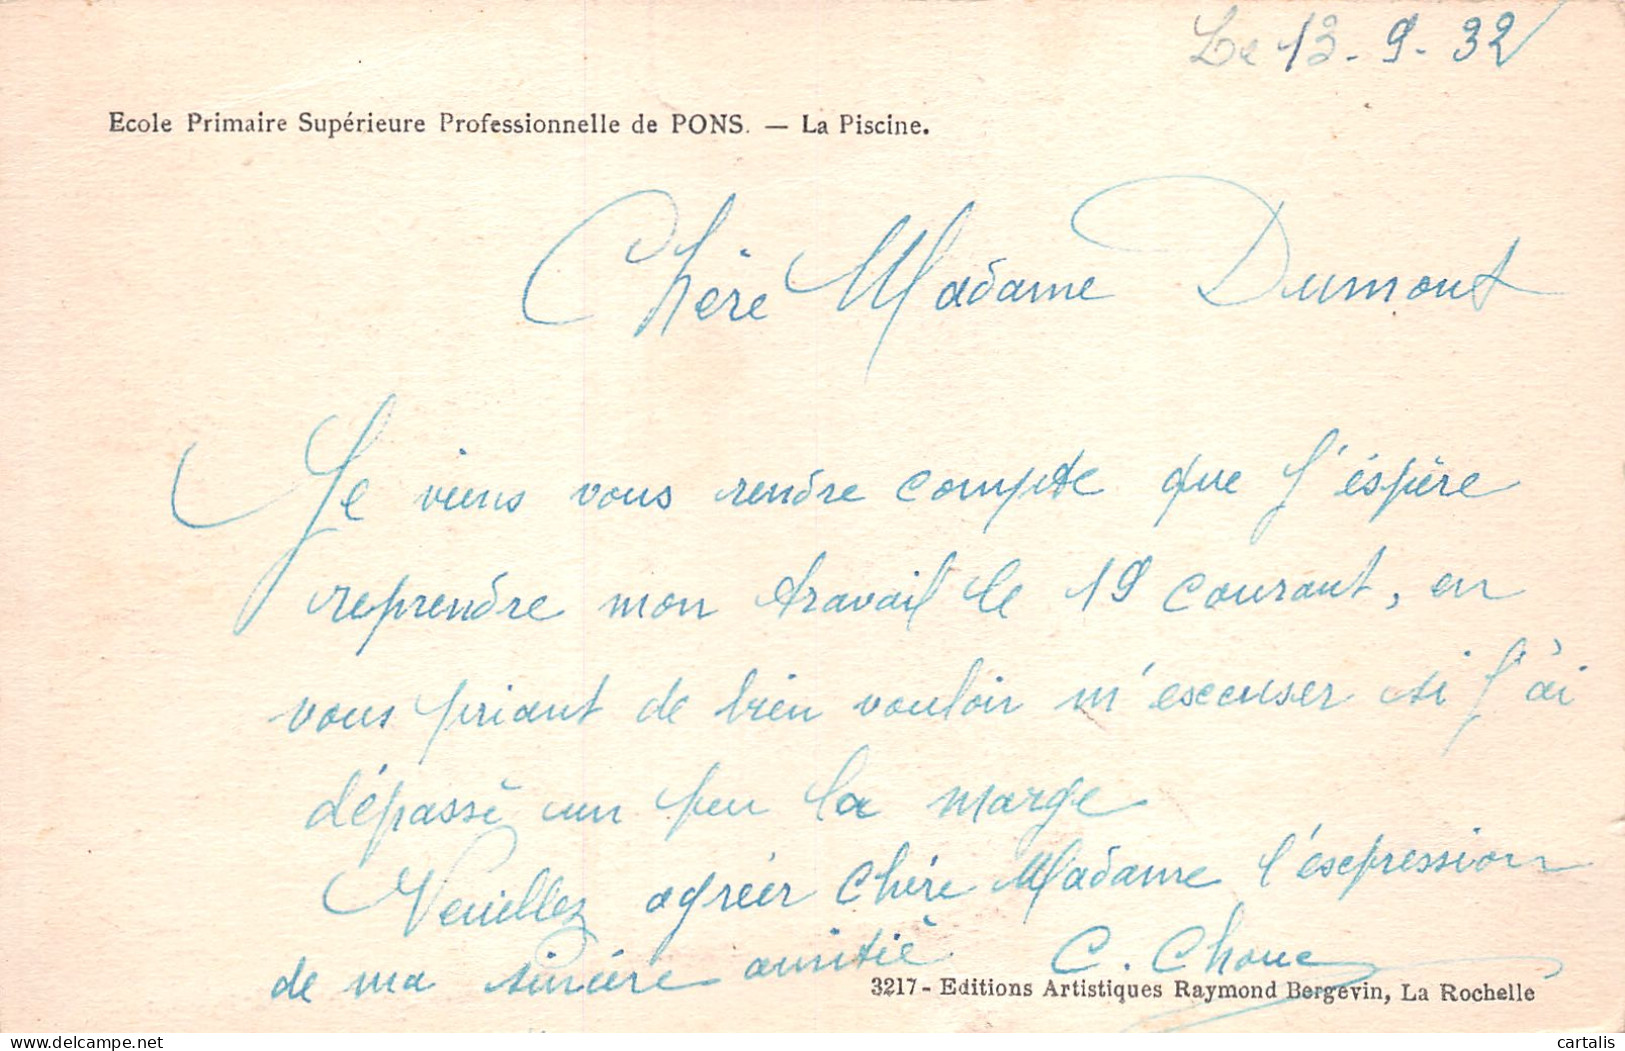 Le 13-9-32
Ecole Primaire Supérieure Professionnelle de PONS. — La Piscine.
Chère Madame Dumont
Je viens vous rendre compte que j'éspère
reprendre mon travail le 19 courant, en
vous priant de bien vouloir m'escenser si j'ai
dépassé un peu la marge
Veuillez agréér Chère Madame l'esepression
de ma sincère amitié C. Choue
3217- Editions Artistiques Raymond Bergevin, La Rochelle
cartalis
delcampe.net